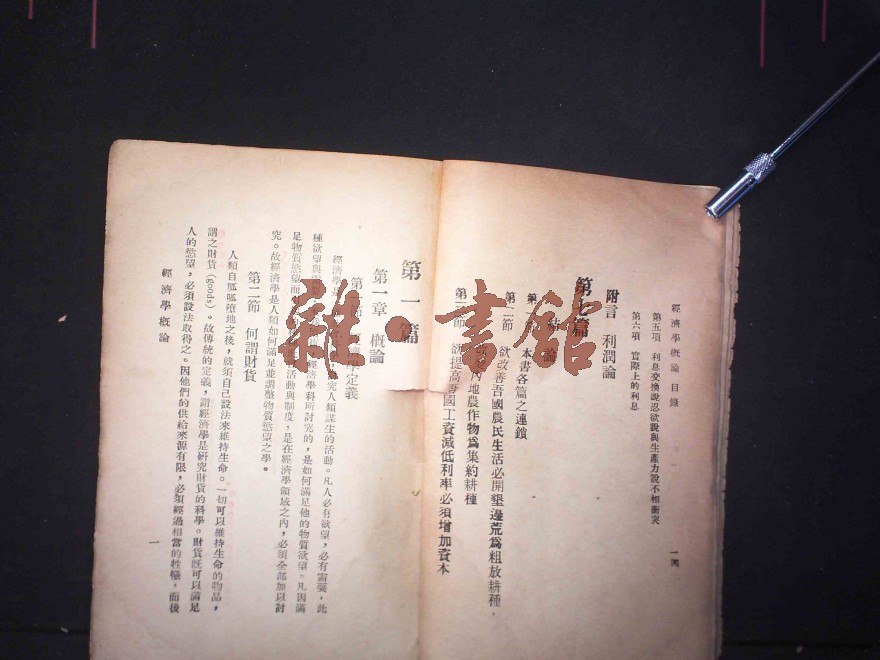 經濟學概論 目錄
一四
第五項 利息交換說忍欲說與生產力說不相衝突
第六項 實際上的利息
附言 利潤論
第七篇 結論
第一節 本書各篇之連鎖
第二節 欲改善吾國農民生活必開墾邊荒為粗放耕種，
內地農作物為集約耕種
第三節 欲提高吾國工資減低利率必須增加資本
第一篇
第一章 概論
第一節 經濟學定義
經濟學是研究人類謀生的活動。凡人必有欲望，必有需要，此
種欲望與 經濟學科所討究的，是如何滿足他的物質欲望。凡因滿
足物質慾望而 活動與制度，是在經濟學領域之內，必須全部加以討
究。故經濟學是人類如何滿足並調整物質慾望之學。
第二節 何謂財貨
人類自呱呱墮地之後，就須自己設法來維持生命。一切可以維持生命的物品，
謂之財貨(goods)。故傳統的定義，謂經濟學是研究財貨的科學。財貨旣可以滿足
人的慾望，必須設法取得之。因他們的供給來源有限，必須經過相當的牲犧，而後
經濟學概論
一
雜·書館